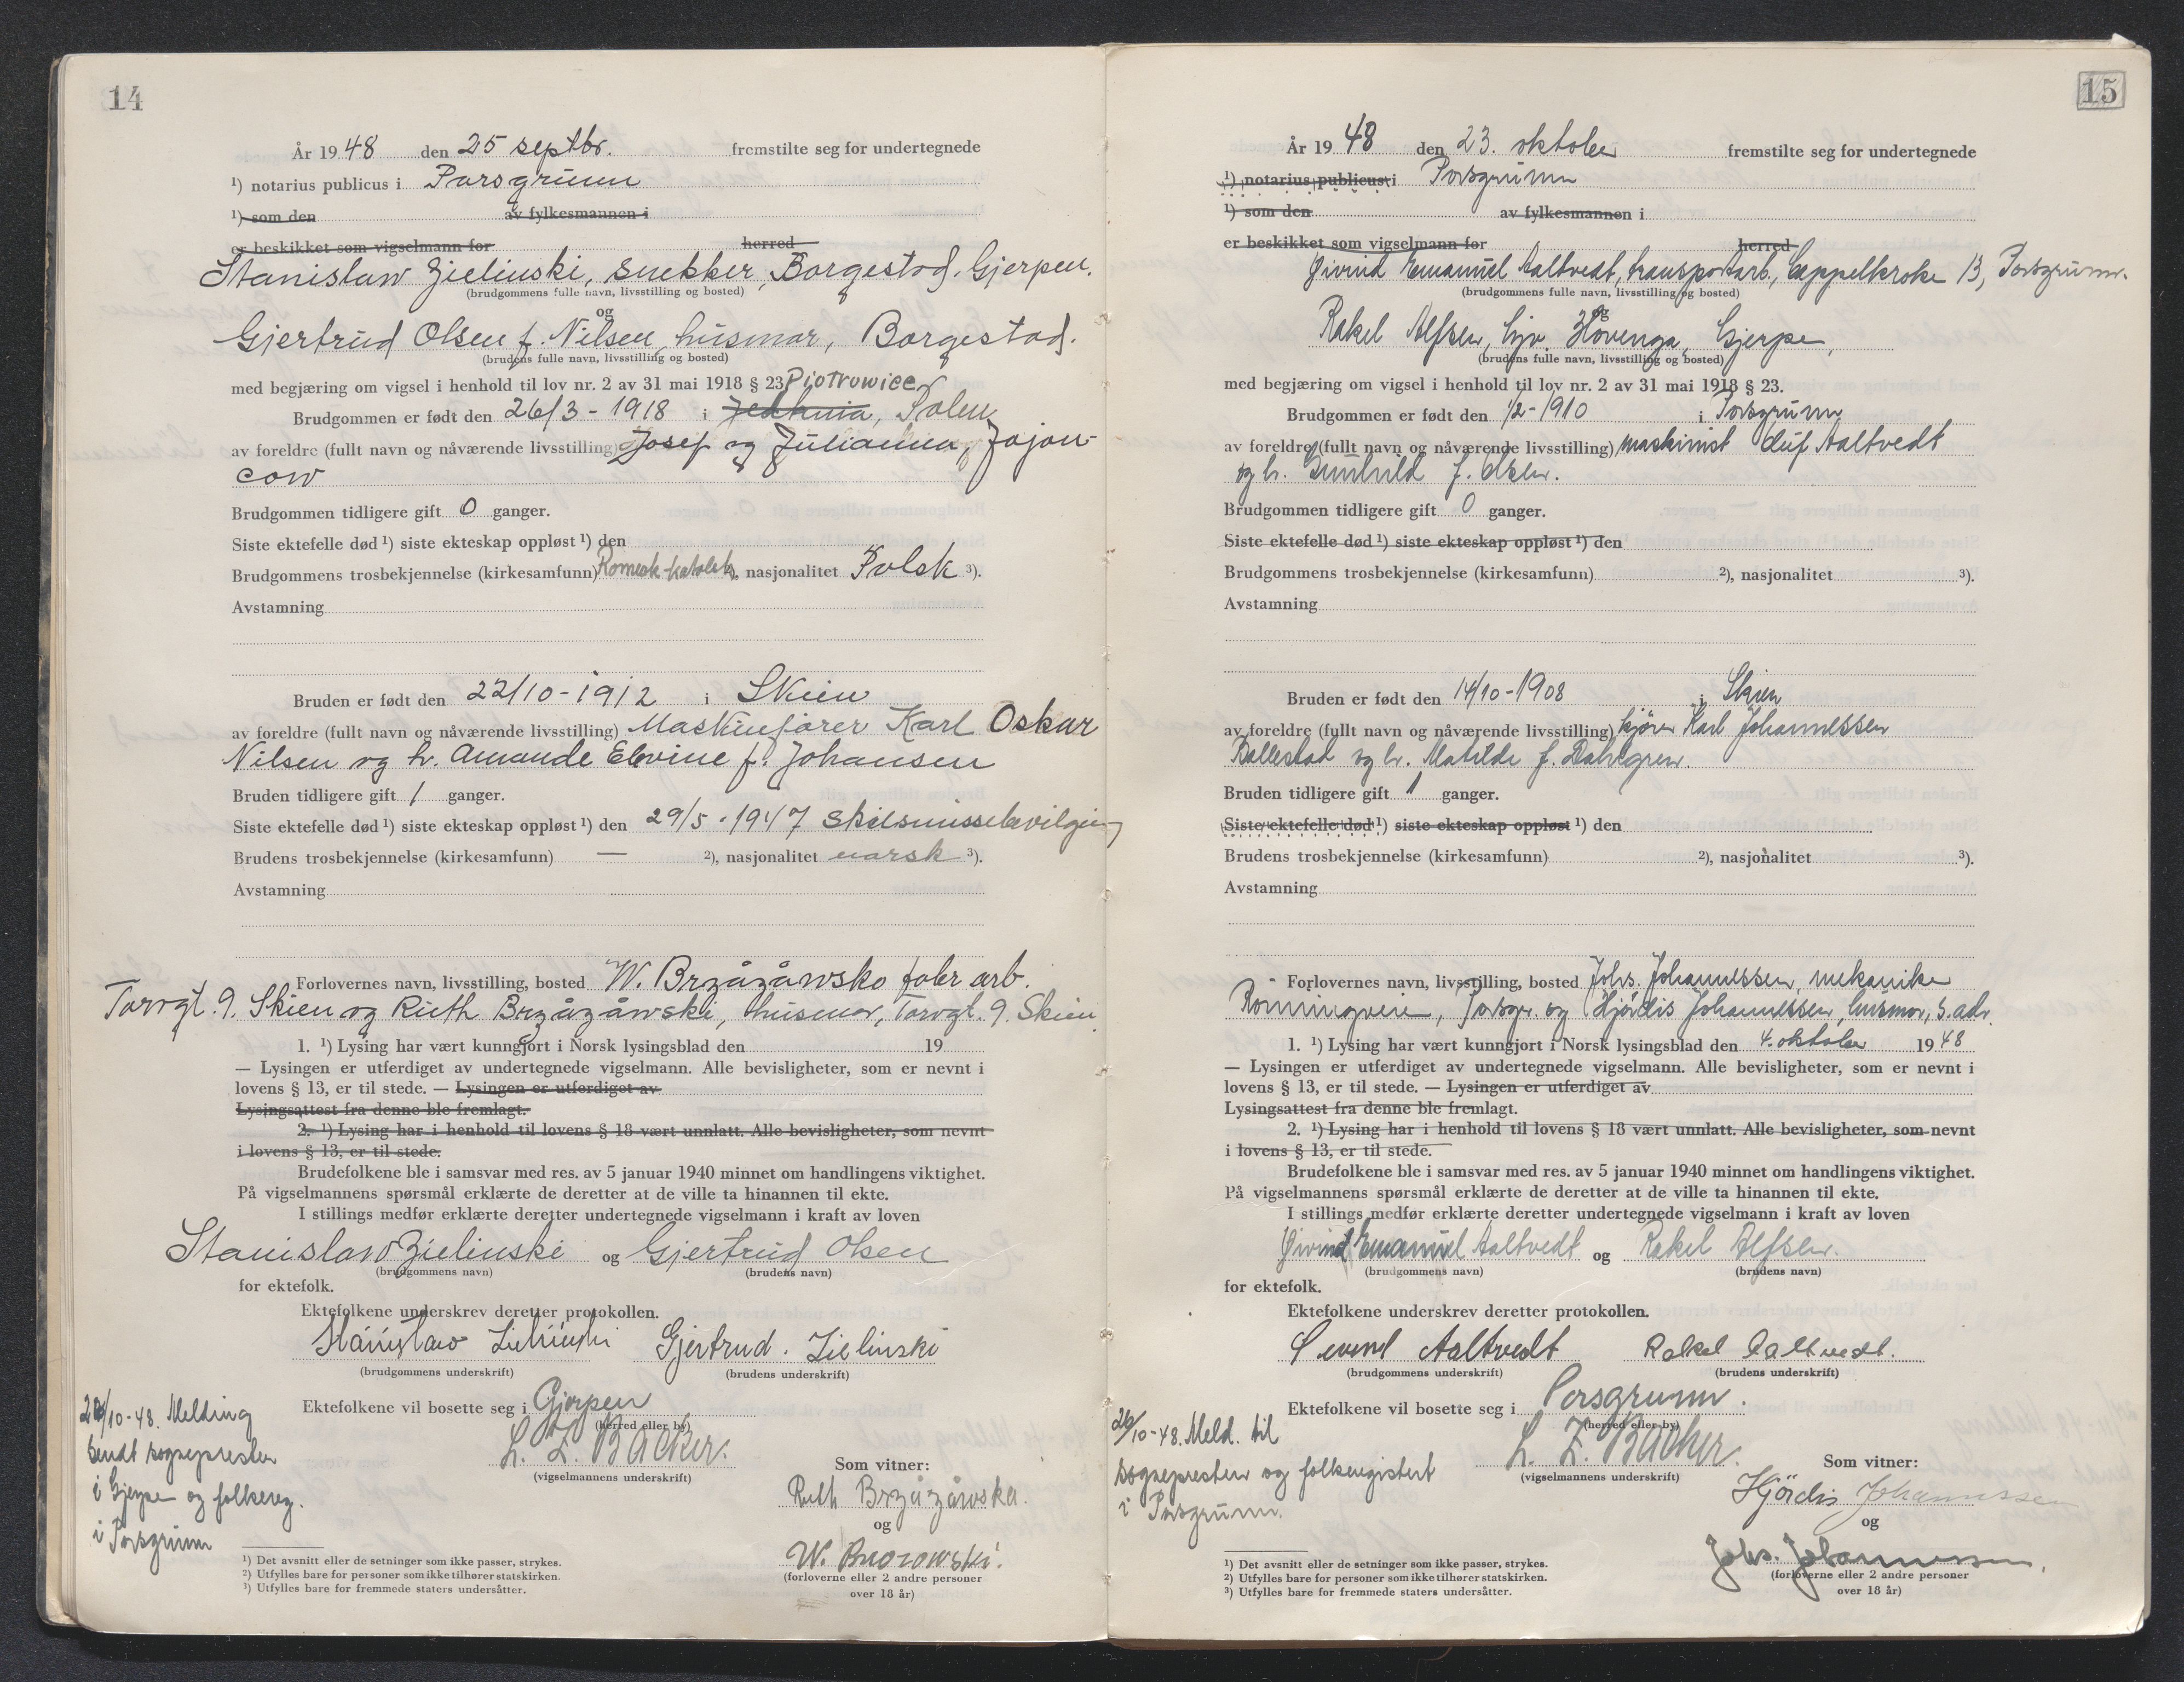 14
År 19 48 den 25 septbr. fremstilte seg for undertegnede
¹) notarius publicus i Porsgrunn
¹) som den av fylkesmannen i
er beskikket som vigselmann for herred
Stanislaw Zielinski, snekker, Borgestad. Gjerpen.
(brudgommens fulle navn, livsstilling og bosted)
og
Gjertrud Olsen f. Nilsen, husmor, Borgestad.
(brudens fulle navn, livsstilling og bosted)
med begjæring om vigsel i henhold til lov nr. 2 av 31 mai 1918 § 23. Piotrowice
Brudgommen er født den 26/3 - 1918 i Polen
av foreldre (fullt navn og nåværende livsstilling) Josef og Julianna, Jajon-
cow
Brudgommen tidligere gift 0 ganger.
Siste ektefelle død ¹) siste ekteskap oppløst ¹) den
Brudgommens trosbekjennelse (kirkesamfunn) Romersk-katolsk, nasjonalitet Polsk ³).
Avstamning
Bruden er født den 22/10 - 1912 i Skien
av foreldre (fullt navn og nåværende livsstilling) Maskinfører Karl Oskar
Nilsen og h. Amande Elvine f. Johansen
Bruden tidligere gift 1 ganger.
Siste ektefelle død ¹) siste ekteskap oppløst ¹) den 29/5 - 1947 skilsmissebevilgning
Brudens trosbekjennelse (kirkesamfunn) — ²), nasjonalitet norsk ³).
Avstamning
Forlovernes navn, livsstilling, bosted W. Brzåzåwsko fabr arb.
Torvgt. 9. Skien og Ruth Brzåzåwski, husmor, Torvgt. 9. Skien
1. ¹) Lysing har vært kunngjort i Norsk lysingsblad den 19
— Lysingen er utferdiget av undertegnede vigselmann. Alle bevisligheter, som er nevnt i
lovens § 13, er til stede. — Lysingen er utferdiget av
Lysingsattest fra denne ble fremlagt.
2. ¹) Lysing har i henhold til lovens § 18 vært unnlatt. Alle bevisligheter, som nevnt
i lovens § 13, er til stede.
Brudefolkene ble i samsvar med res. av 5 januar 1940 minnet om handlingens viktighet.
På vigselmannens spørsmål erklærte de deretter at de ville ta hinannen til ekte.
I stillings medfør erklærte deretter undertegnede vigselmann i kraft av loven
Stanislaw Zielinski og Gjertrud Olsen
(brudgommens navn) (brudens navn)
for ektefolk.
Ektefolkene underskrev deretter protokollen.
Stanisław Zieliński Gjertrud. Zielinski
(brudgommens underskrift) (brudens underskrift)
Ektefolkene vil bosette seg i Gjerpen
(herred eller by)
L. Z. Backer.
(vigselmannens underskrift)
/10-48. Melding
sendt sogneprester
i Gjerpen og folkereg.
i Porsgrunn
Som vitner:
Ruth Brzåzåwska.
og
W. Brzozowski.
(forloverne eller 2 andre personer
over 18 år)
¹) Det avsnitt eller de setninger som ikke passer, strykes.
²) Utfylles bare for personer som ikke tilhører statskirken.
³) Utfylles bare for fremmede staters undersåtter.
15
År 19 48 den 23. oktober fremstilte seg for undertegnede
¹) notarius publicus i Porsgrunn
¹) som den av fylkesmannen i
er beskikket som vigselmann for herred
Øivind Emanuel Aaltvedt, transportarb., Cappelkroke 13, Porsgrunn.
(brudgommens fulle navn, livsstilling og bosted)
og
Rakel Alfsen, hjv. Hovenga, Gjerpen,
(brudens fulle navn, livsstilling og bosted)
med begjæring om vigsel i henhold til lov nr. 2 av 31 mai 1918 § 23.
Brudgommen er født den 1/2 - 1910 i Porsgrunn
av foreldre (fullt navn og nåværende livsstilling) maskinist Oluf Aaltvedt
og h. Gunhild f. Olsen.
Brudgommen tidligere gift 0 ganger.
Siste ektefelle død ¹) siste ekteskap oppløst ¹) den
Brudgommens trosbekjennelse (kirkesamfunn) ²), nasjonalitet ³).
Avstamning
Bruden er født den 14/10 - 1908 i Skien
av foreldre (fullt navn og nåværende livsstilling) kjører Karl Johannessen
Rallestad og h. Matilde f. Dahlgren.
Bruden tidligere gift 1 ganger.
Siste ektefelle død ¹) siste ekteskap oppløst ¹) den
Brudens trosbekjennelse (kirkesamfunn) ²), nasjonalitet ³).
Avstamning
Forlovernes navn, livsstilling, bosted Johs. Johannessen, mekanike
Rønningveien, Porsgr. og Hjørdis Johannessen, husmor, s. adr.
1. ¹) Lysing har vært kunngjort i Norsk lysingsblad den 4. oktober 19 48
— Lysingen er utferdiget av undertegnede vigselmann. Alle bevisligheter, som er nevnt i
lovens § 13, er til stede. — Lysingen er utferdiget av
Lysingsattest fra denne ble fremlagt.
2. ¹) Lysing har i henhold til lovens § 18 vært unnlatt. Alle bevisligheter, som nevnt
i lovens § 13, er til stede.
Brudefolkene ble i samsvar med res. av 5 januar 1940 minnet om handlingens viktighet.
På vigselmannens spørsmål erklærte de deretter at de ville ta hinannen til ekte.
I stillings medfør erklærte deretter undertegnede vigselmann i kraft av loven
Øivind Emanuel Aaltvedt og Rakel Alfsen.
(brudgommens navn) (brudens navn)
for ektefolk.
Ektefolkene underskrev deretter protokollen.
Aaltvedt Rakel Aaltvedt.
(brudgommens underskrift) (brudens underskrift)
Ektefolkene vil bosette seg i Porsgrunn.
(herred eller by)
L. Z. Backer.
(vigselmannens underskrift)
26/10-48. Meld. til
sogneprester og folkeregistert
i Porsgrunn.
Som vitner:
Hjördis Johannessen
og
Johs. Johannessen.
(forloverne eller 2 andre personer
over 18 år)
¹) Det avsnitt eller de setninger som ikke passer, strykes.
²) Utfylles bare for personer som ikke tilhører statskirken.
³) Utfylles bare for fremmede staters undersåtter.